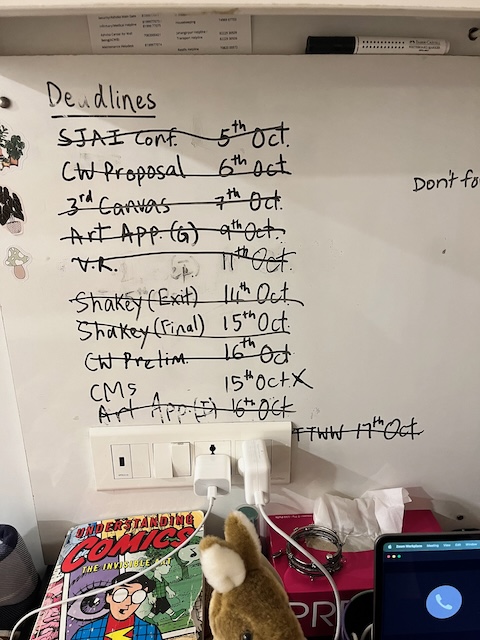 Deadlines
SJAI Conf. 5th Oct.
CW Proposal 6th Oct
3rd Canvas 7th Oct.
Art App. (G) 9th Oct.
V.R. 11th Oct.
Shakey (Exit) 14th Oct.
Shakey (Final) 15th Oct.
CW Prelim 16th Oct
CMs 15th Oct X
Art App (I) 16th Oct
TTWW 17th Oct
Don't fo
UNDERSTANDING
COMICS
THE INVISIBLE ART
PRE